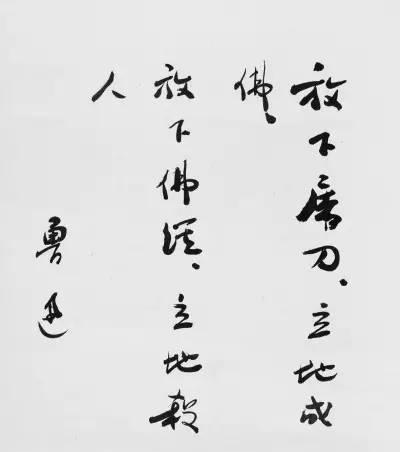 放下屠刀、立地成
佛、
放下佛经、立地殺
人
魯迅